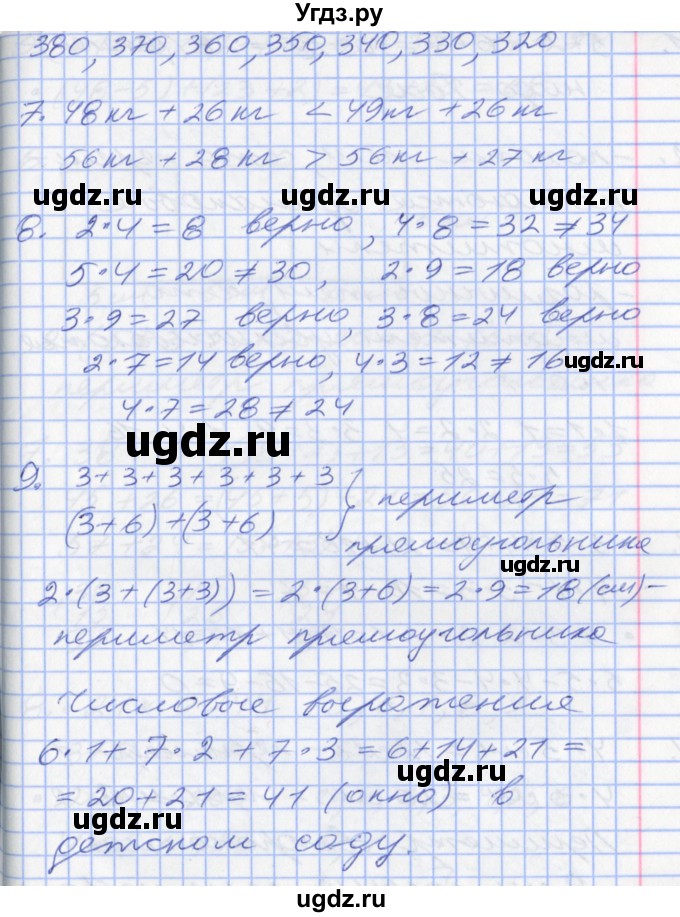 Угдз.ру
380, 370, 360, 350, 340, 330, 320
7. 48кг + 26кг < 49кг + 26кг
56кг + 28кг > 56кг + 27кг
ugdz.ru ugdz.ru
8. 2·4=8 верно, 4·8=32≠34
5·4=20≠30, 2·9=18 верно
3·9=27 верно, 3·8=24 верно
2·7=14 верно, 4·3=12≠16
ugdz.ru
4·7=28≠24
ugdz.ru
9. 3+3+3+3+3+3
(3+6)+(3+6) } периметр
прямоугольника
ugdz.ru
2·(3+(3+3))=2·(3+6)=2·9=18(см)-
периметр прямоугольника
Числовые выражения
6·1+7·2+7·3=6+14+21=
ugdz.ru
=20+21=41 (окно) в
ugdz.ru
детском саду.
ugdz.ru
ugdz.ru